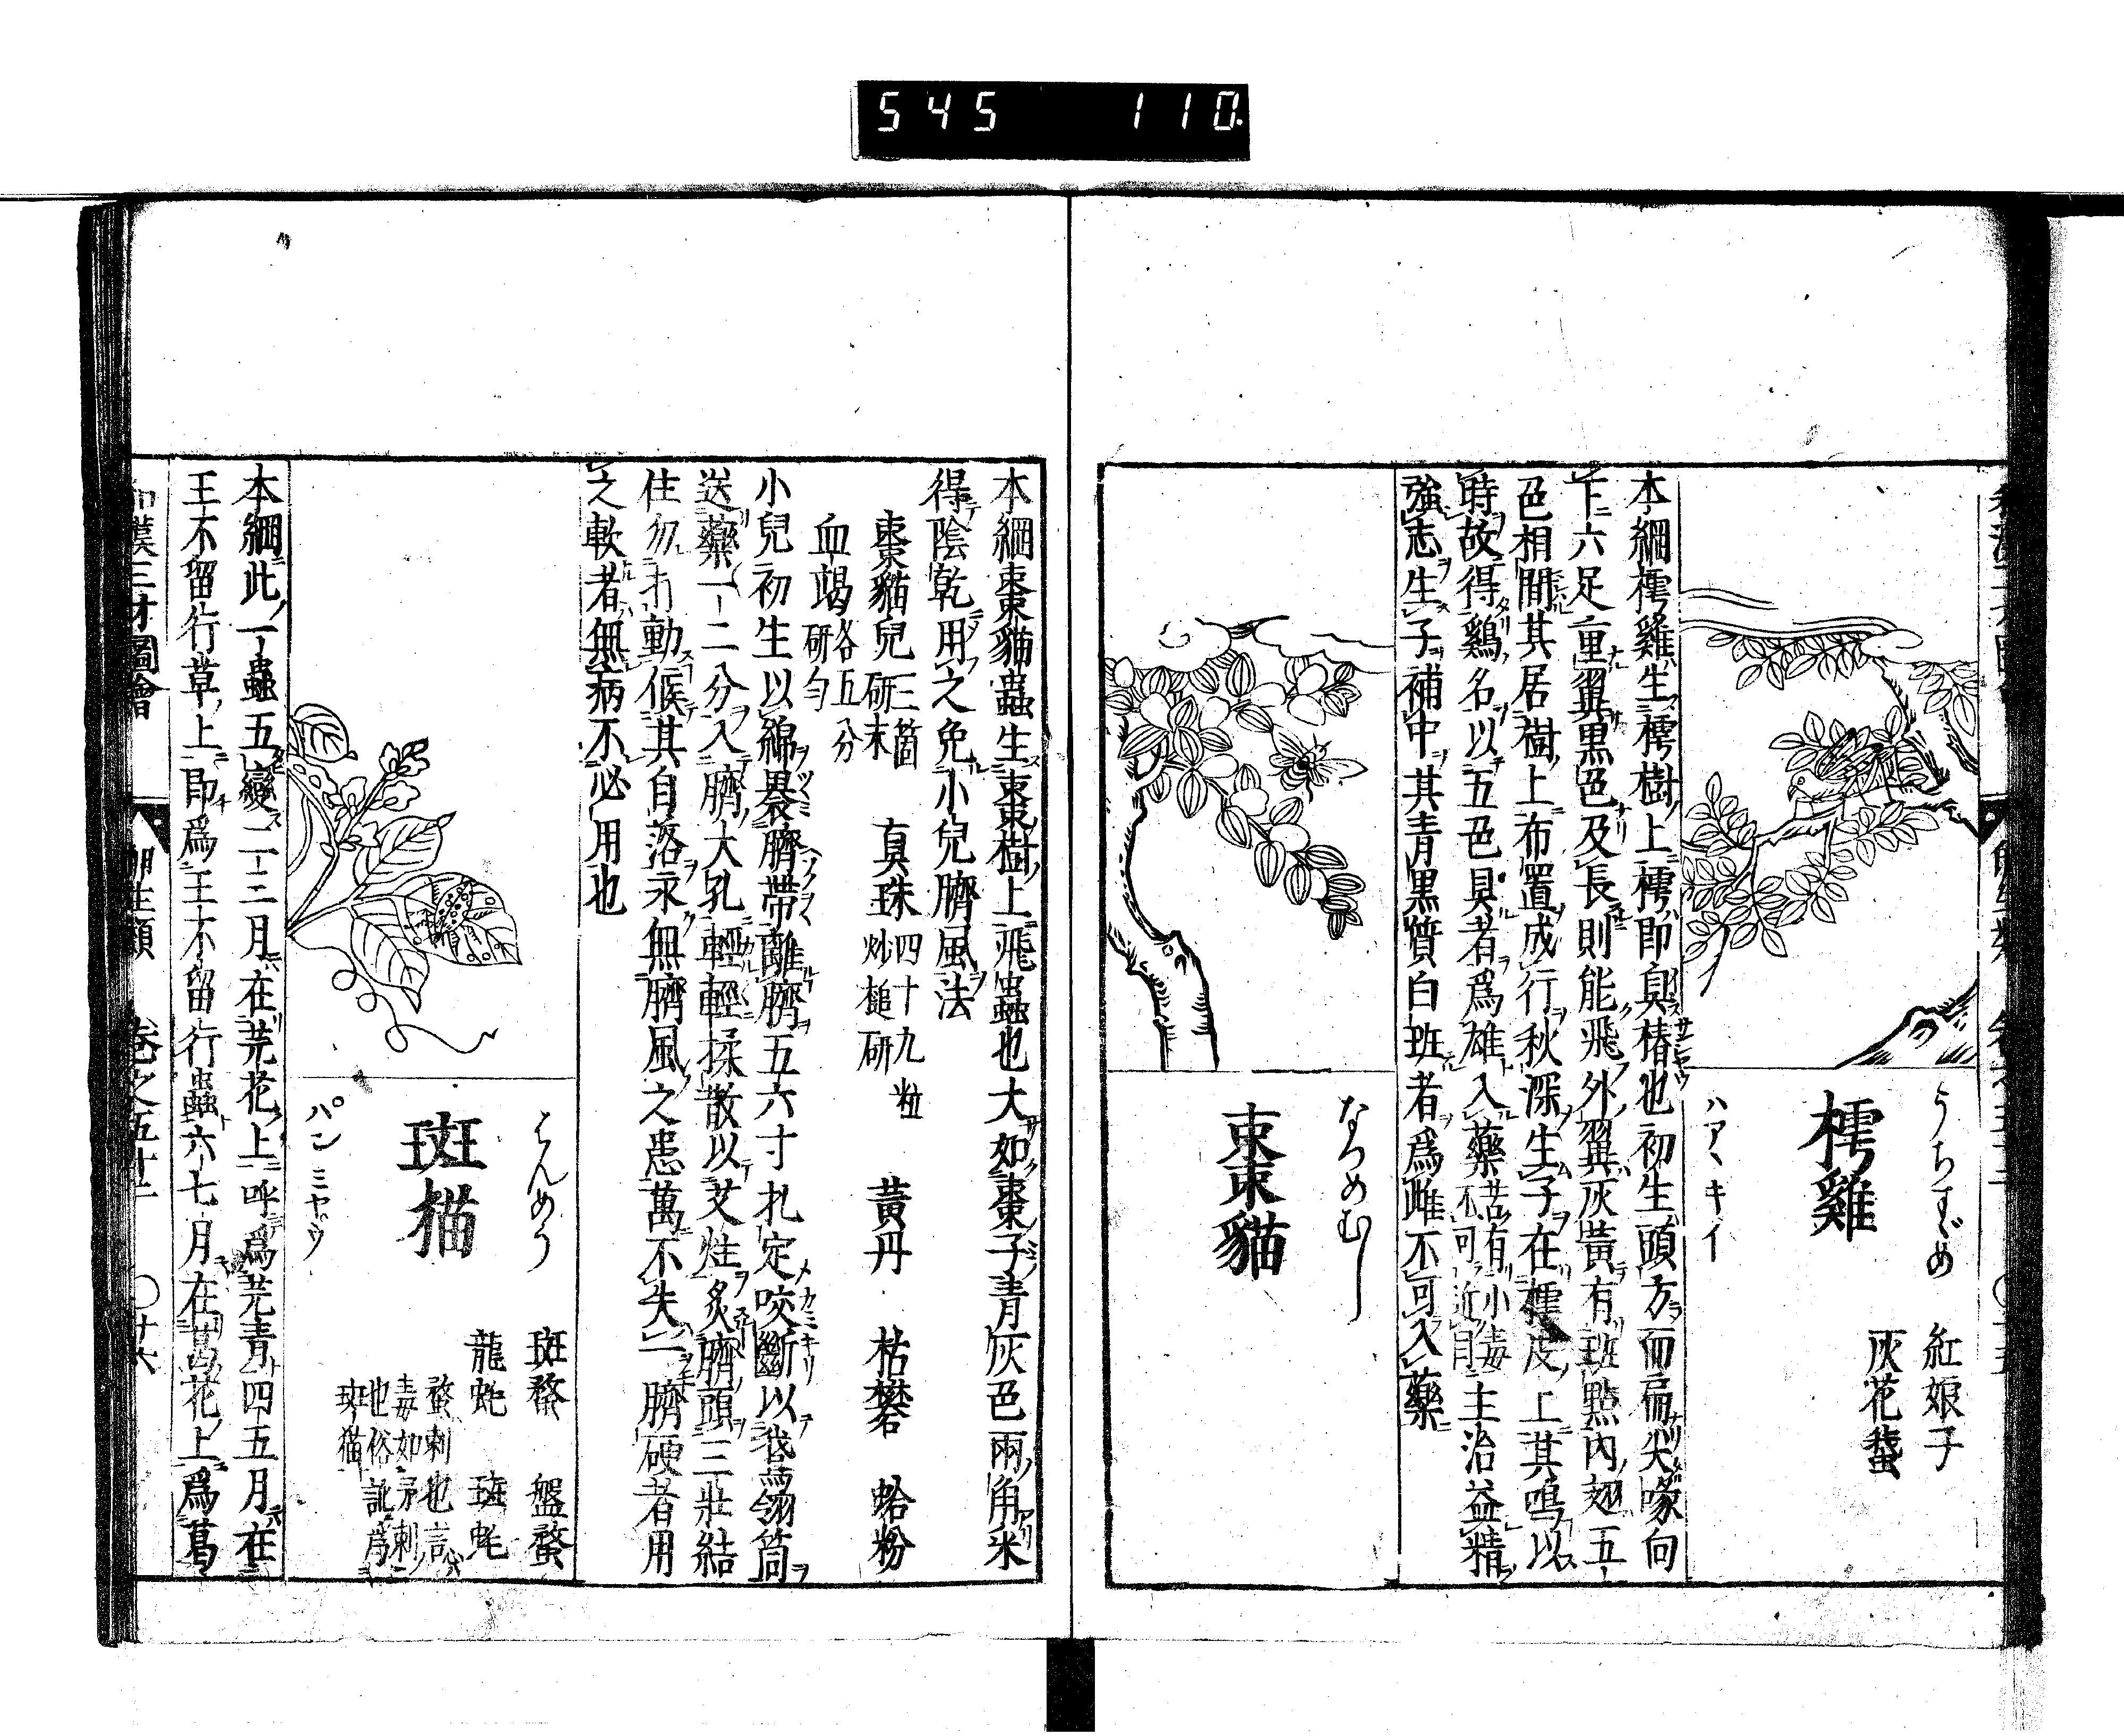 545 110
うちすゞめ 紅娘子
灰花蛾
樗雞
ハアヽキイ
本綱樗雞生樗樹上樗即臭椿也初生頭方而扁尖喙向
下六足重翼黒色及長則能飛外翼灰黃有斑點內翅五
色相間其居樹上布置成行秋深生子在樗皮上其鳴以
時故得鷄名以五色具者爲雄入藥苦有小毒不可近目主治益精
強志生子補中其青黒質白斑者爲雌不可入藥
なつめむし
棗貓
本綱棗貓蟲生棗樹上飛蟲也大如棗子青灰色兩角采
得陰乾用之免小兒臍風法
棗貓兒三箇研末 真珠四十九粒炒槌研 黃丹 枯礬 蛤粉
血竭各五分研勻
小兒初生以綿裹臍帶離臍五六寸扎定咬斷以鵞翎筒
送藥一二分入臍大孔輕輕揉散以艾炷炙臍頭三壯結
住勿打動候其自落永無臍風之患萬不失一臍硬者用
之軟者無病不必用也
はんめう 斑蝥 盤蝥
龍蚝 斑蚝
斑猫
蝥刺也言
毒如矛刺
也俗訛爲
斑猫
パンミヤウ
本綱此一蟲五變二三月在芫花上呼爲芫青四五月在
王不留行草上即爲王不留行蟲六七月在葛花上爲葛
和漢三才圖會 卵生類 卷之五十二 〇廿六